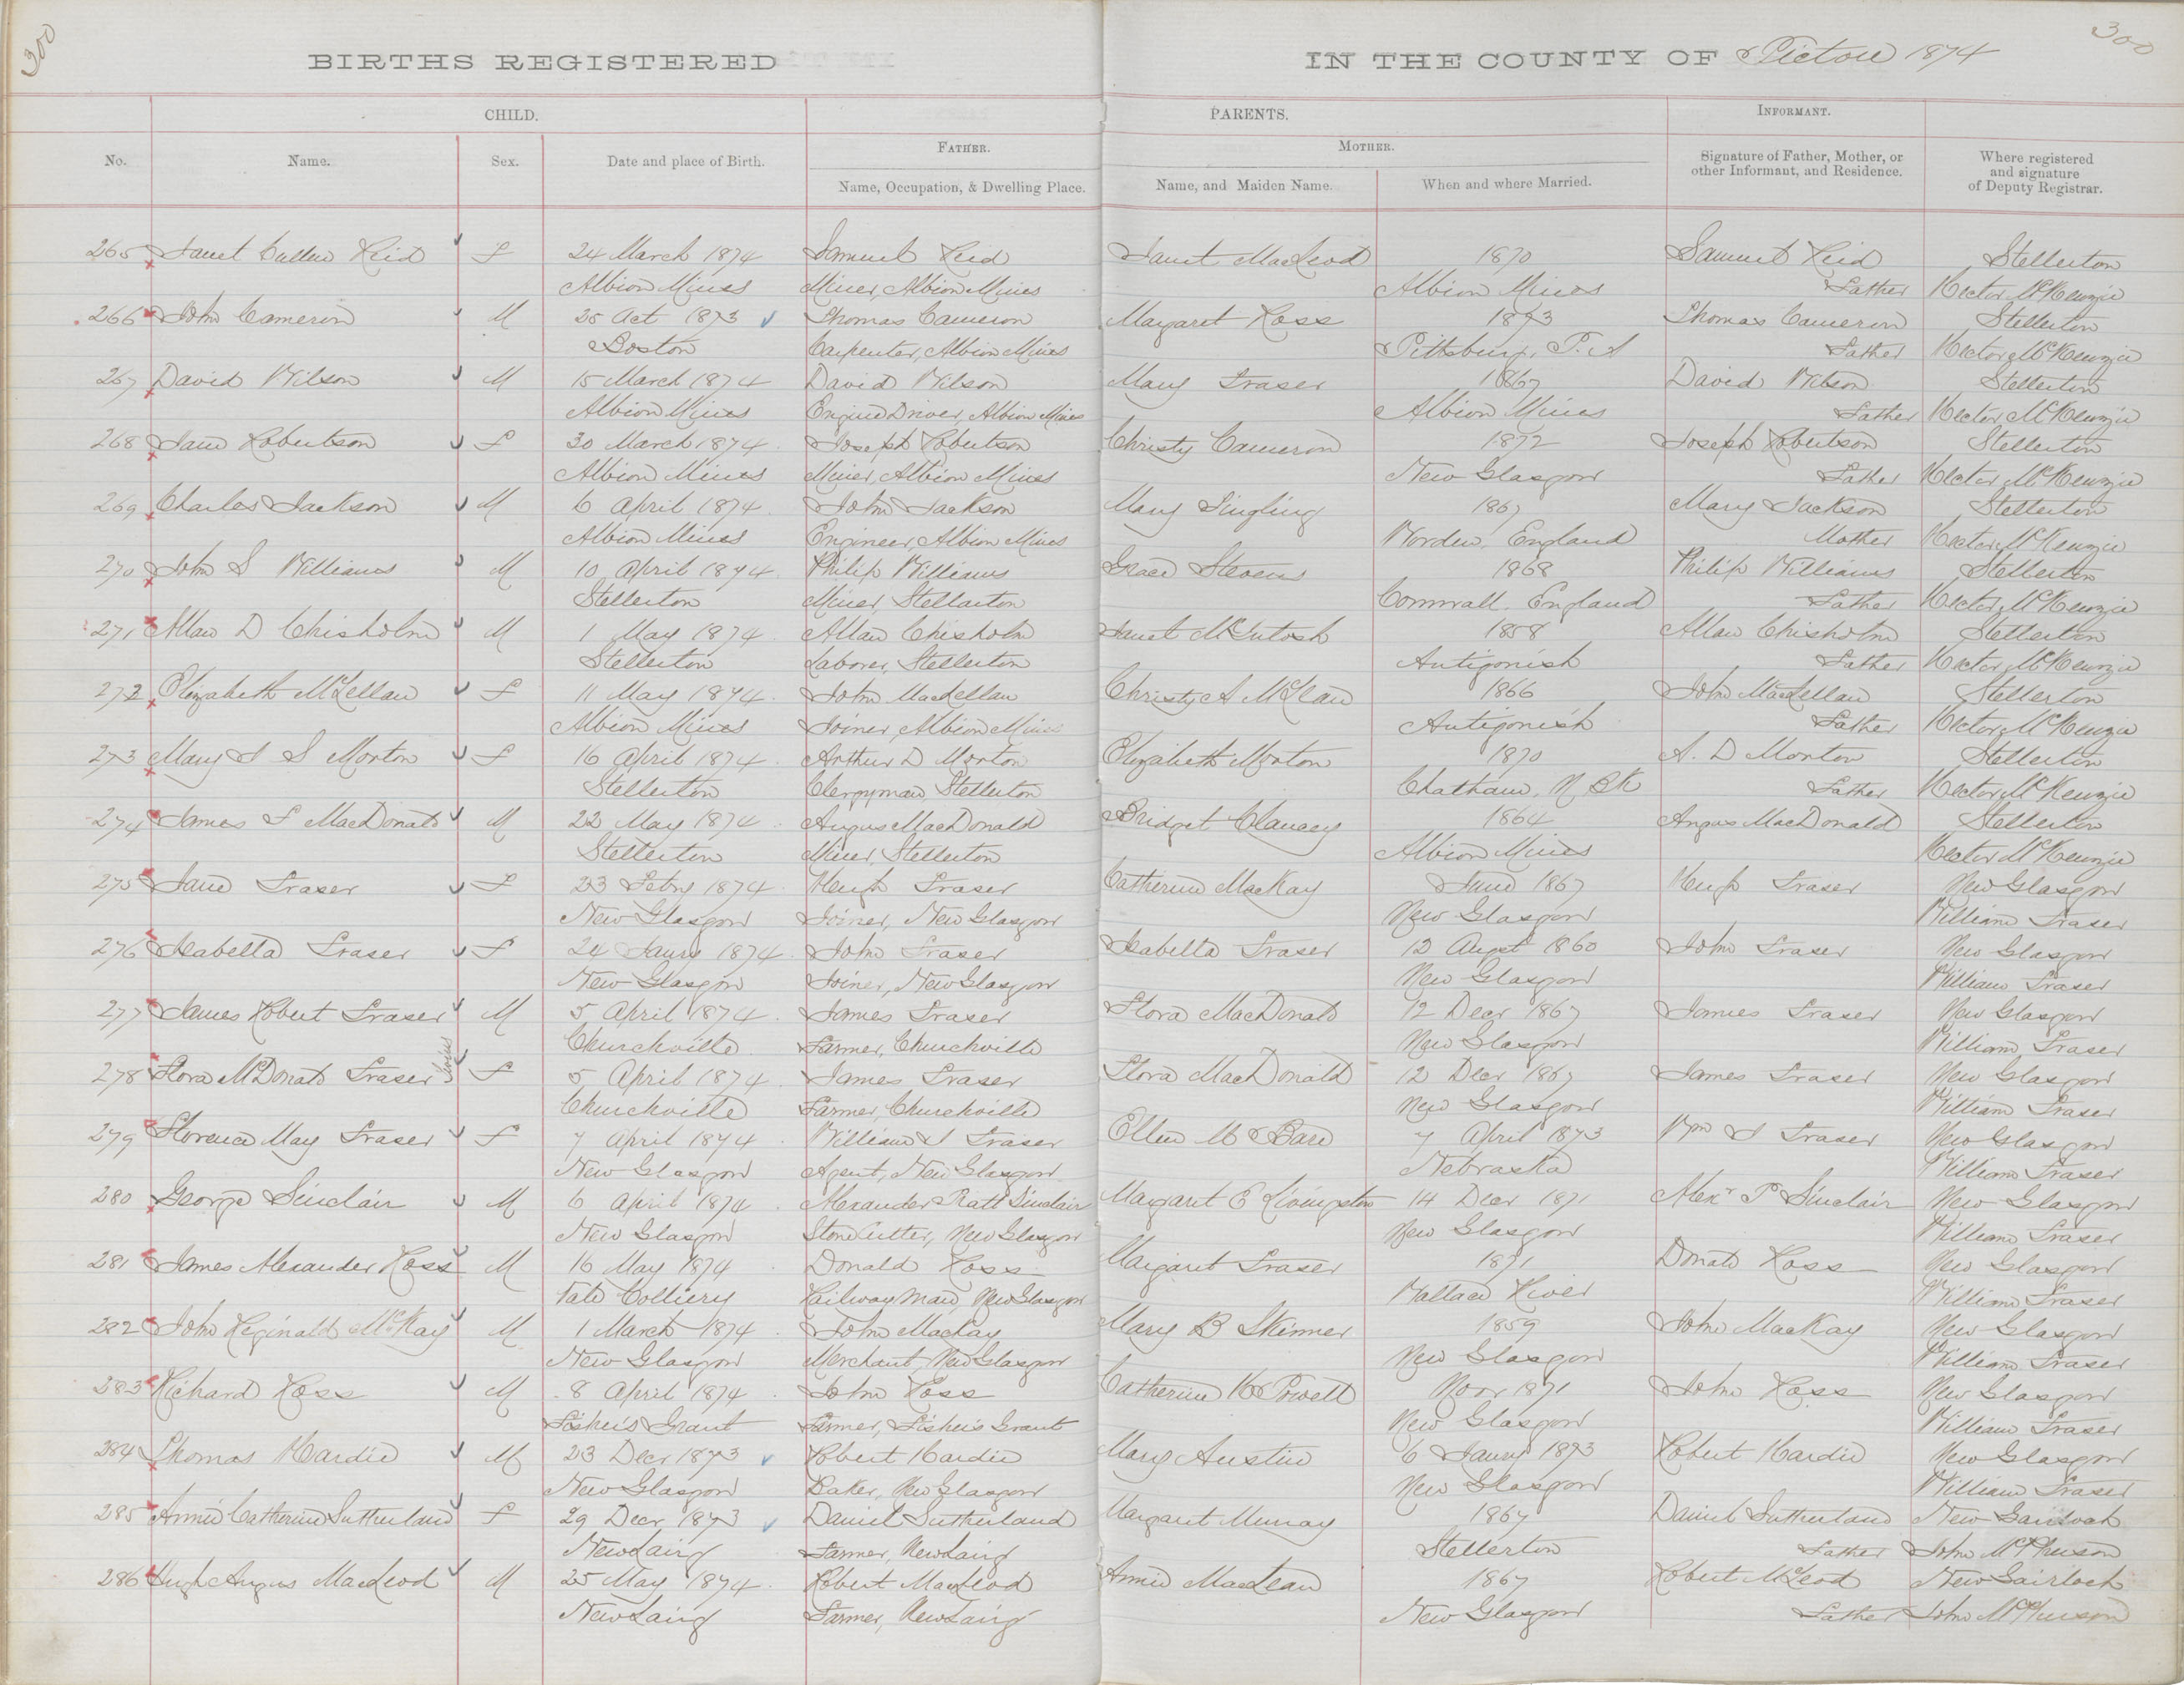 300
300
BIRTHS REGISTERED IN THE COUNTY OF Pictou 1874
CHILD. PARENTS. INFORMANT.
No. Name. Sex. Date and place of Birth. FATHER. MOTHER. Signature of Father, Mother, or other Informant, and Residence. Where registered and signature of Deputy Registrar.
Name, Occupation, & Dwelling Place. Name, and Maiden Name. When and where Married.
265 Janet Cullen Reid F 24 March 1874 Samuel Reid Janet MacLeod 1870 Samuel Reid Stellerton
Albion Mines Miner, Albion Mines Albion Mines Father Hector McKenzie
266 John Cameron M 25 Oct 1873 Thomas Cameron Margaret Ross 1873 Thomas Cameron Stellerton
Boston Carpenter, Albion Mines Pittsburg, P. A Father Hector McKenzie
267 David Wilson M 15 March 1874 David Wilson Mary Fraser 1867 David Wilson Stellerton
Albion Mines Engine Driver, Albion Mines Albion Mines Father Hector McKenzie
268 Jane Robertson F 30 March 1874 Joseph Robertson Christy Cameron 1872 Joseph Robertson Stellerton
Albion Mines Miner, Albion Mines New Glasgow Father Hector McKenzie
269 Charles Jackson M 6 April 1874 John Jackson Mary 1867 Mary Jackson Stellerton
Albion Mines Engineer, Albion Mines England Mother Hector McKenzie
270 John S Williams M 10 April 1874 Philip Williams Grace Stevens 1868 Philip Williams Stellerton
Stellerton Miner, Stellarton Cornwall, England Father Hector McKenzie
271 Allan D Chisholm M 1 May 1874 Allan Chisholm Janet McIntosh 1858 Allan Chisholm Stellerton
Stellerton Laborer, Stellerton Antigonish Father Hector McKenzie
272 Elizabeth McLellan F 11 May 1874 John MacLellan Christy A McLean 1866 John MacLellan Stellerton
Albion Mines Joiner, Albion Mines Antigonish Father Hector McKenzie
273 Mary S Morton F 16 April 1874 Arthur D Morton Elizabeth Morton 1870 A. D Morton Stellerton
Stellerton Clergyman, Stellerton Chatham, N Bk Father Hector McKenzie
274 James F MacDonald M 22 May 1874 Angus MacDonald Bridget Clancey 1864 Angus MacDonald Stellerton
Stellerton Miner, Stellerton Albion Mines Hector McKenzie
275 Jane Fraser F 23 Feby 1874 Hugh Fraser Catherine MacKay June 1867 Hugh Fraser New Glasgow
New Glasgow Joiner, New Glasgow New Glasgow William Fraser
276 Isabella Fraser F 24 Jany 1874 John Fraser Isabella Fraser 12 Augst 1860 John Fraser New Glasgow
New Glasgow Joiner, New Glasgow New Glasgow William Fraser
277 James Robert Fraser M 5 April 1874 James Fraser Flora MacDonald 12 Decr 1867 James Fraser New Glasgow
Churchville Farmer, Churchville New Glasgow William Fraser
278 Flora McDonald Fraser Twins F 5 April 1874 James Fraser Flora MacDonald 12 Decr 1867 James Fraser New Glasgow
Churchville Farmer, Churchville New Glasgow William Fraser
279 Florence May Fraser F 7 April 1874 William J Fraser Ellen M 7 April 1873 Wm J Fraser New Glasgow
New Glasgow Agent, New Glasgow Nebraska William Fraser
280 George Sinclair M 6 April 1874 Alexander Sinclair Margaret E Livingston 14 Decr 1871 Alexr P Sinclair New Glasgow
New Glasgow Stone Cutter, New Glasgow New Glasgow William Fraser
281 James Alexander Ross M 16 May 1874 Donald Ross Margaret Fraser 1871 Donald Ross New Glasgow
Vale Colliery Railway man, New Glasgow Wallace River William Fraser
282 John Reginald McKay M 1 March 1874 John MacKay Mary B Skinner 1859 John MacKay New Glasgow
New Glasgow Merchant, New Glasgow New Glasgow William Fraser
283 Richard Ross M 8 April 1874 John Ross Catherine H Powell Novr 1871 John Ross New Glasgow
Fisher's Grant Farmer, Fisher's Grant New Glasgow William Fraser
284 Thomas Hardie M 23 Decr 1873 Robert Hardie Mary Austin 6 Jany 1873 Robert Hardie New Glasgow
New Glasgow Baker, New Glasgow New Glasgow William Fraser
285 Annie Catherine Sutherland F 29 Decr 1873 Daniel Sutherland Margaret Murray 1867 Daniel Sutherland New Gairloch
New Lairg Farmer, New Lairg Stellerton Father John McPherson
286 Hugh Angus MacLeod M 25 May 1874 Robert MacLeod Annie MacLean 1867 Robert McLeod New Gairloch
New Lairg Farmer, New Lairg New Glasgow Father John McPherson